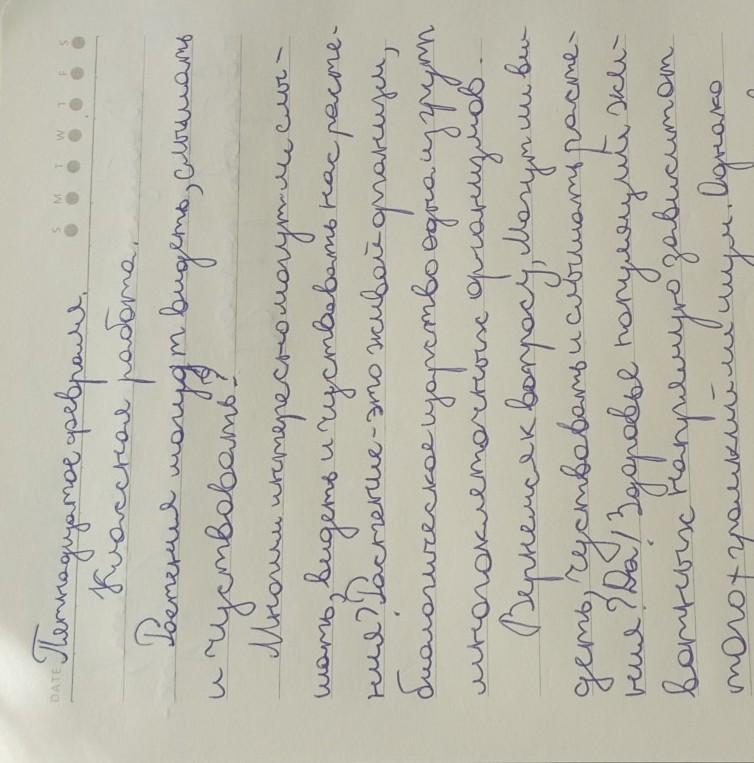 DATE S M T W T F S
Пятнадцатое февраля.
Классная работа.
Растения могут видеть, слышать
и чуствовать?
Многим интересно могут ли слы-
шать, видеть и чуствовать нас расте-
ния? Растение - это живой организм,
биологическое царство одна из групп
многоклеточных организмов.
Вернемся к вопросу, Могут ли ви-
деть, чуствовать и слышать расте-
ния? Да! Здоровье популяций жи-
вотных напрямую зависит от
того громкий ли шум. Однако